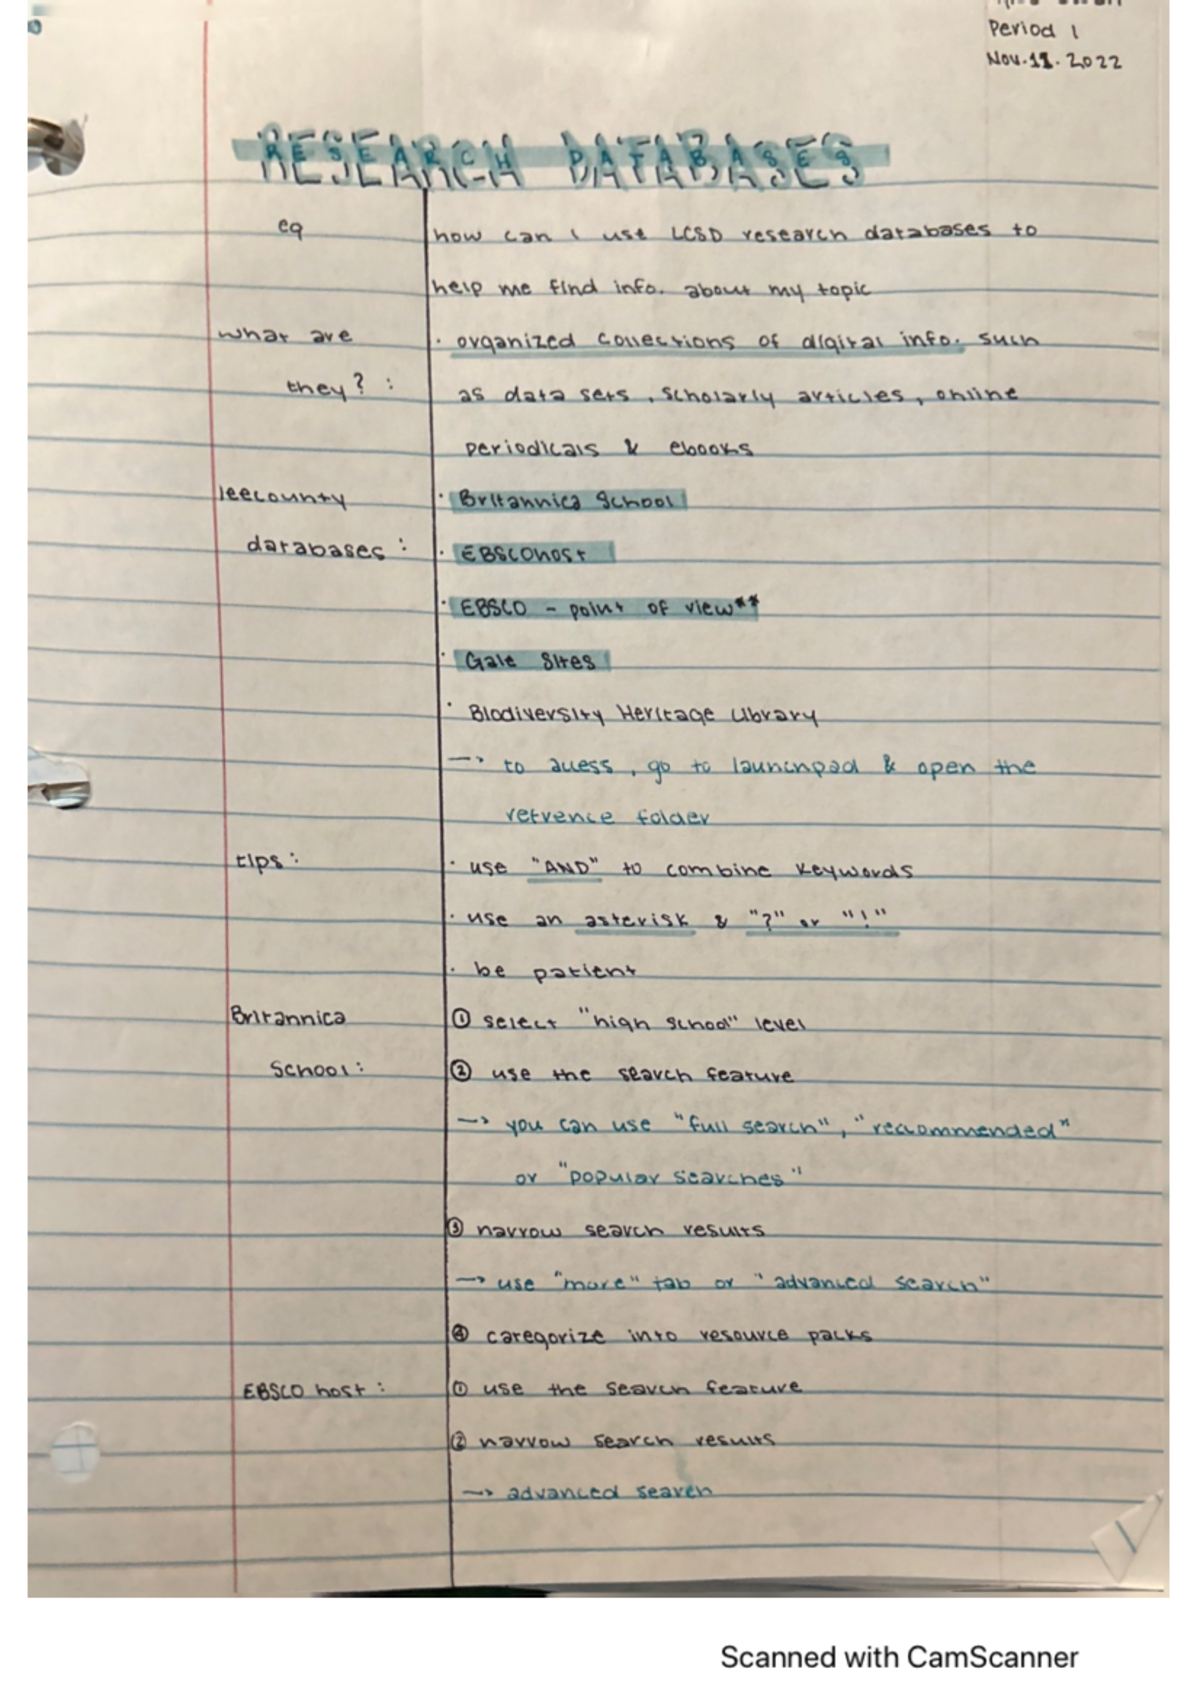 Period 1
Nov. 11. 2022
RESEARCH DATABASES
eq
how can i use LCSD research databases to
help me find info. about my topic
what are
they? :
· organized collections of digital info. such
as data sets, scholarly articles, online
periodicals & ebooks
leecounty
databases :
· Britannica School
· EBSCOhost
· EBSCO - point of view**
· Gale Sites
· Biodiversity Heritage Library
→ to access, go to launchpad & open the
refrence folder
tips :
· use "AND" to combine keywords
· use an asterisk & "?" or "!"
· be patient
Britannica
School :
① select "high school" level
② use the search feature
→ you can use "full search", "reccommended"
or "popular searches"
③ narrow search results
→ use "more" tab or "advanced search"
④ categorize into resource packs
EBSCO host :
① use the search feature
② narrow search results
→ advanced search
Scanned with CamScanner